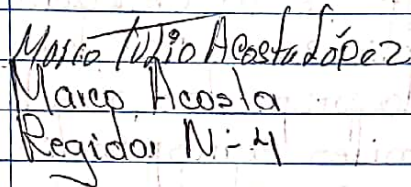 Marco Tulio Acosta López
Marco Acosta
Regidor N-4